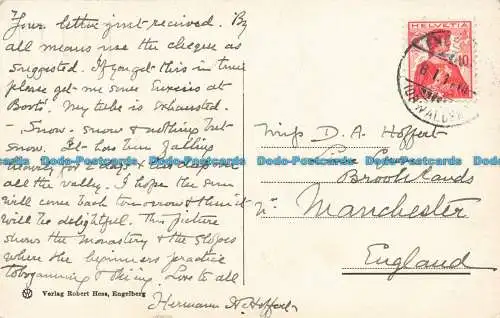 Your letter just received. By
all means use the cheque as
suggested. If you get this in time
please get me some
Boots'. My tube is exhausted.
- Snow - snow & nothing but
snow. It has been falling
for 2 days & lies deep over
all the valley. I hope the sun
will come back tomorrow & then it
will be delightful. This picture
shows the monastery & the slopes
where the beginners practice
tobogganing & skiing. Love to all
Hermann H. Hoffert
Verlag Robert Hess, Engelberg
HELVETIA
10
Miss D. A. Hoffert
Brooklands
Nr. Manchester
England
Dodo-Postcards Dodo-Postcards Dodo-Postcards Dodo-Postcards Dodo-Postcards Dodo-Postcards